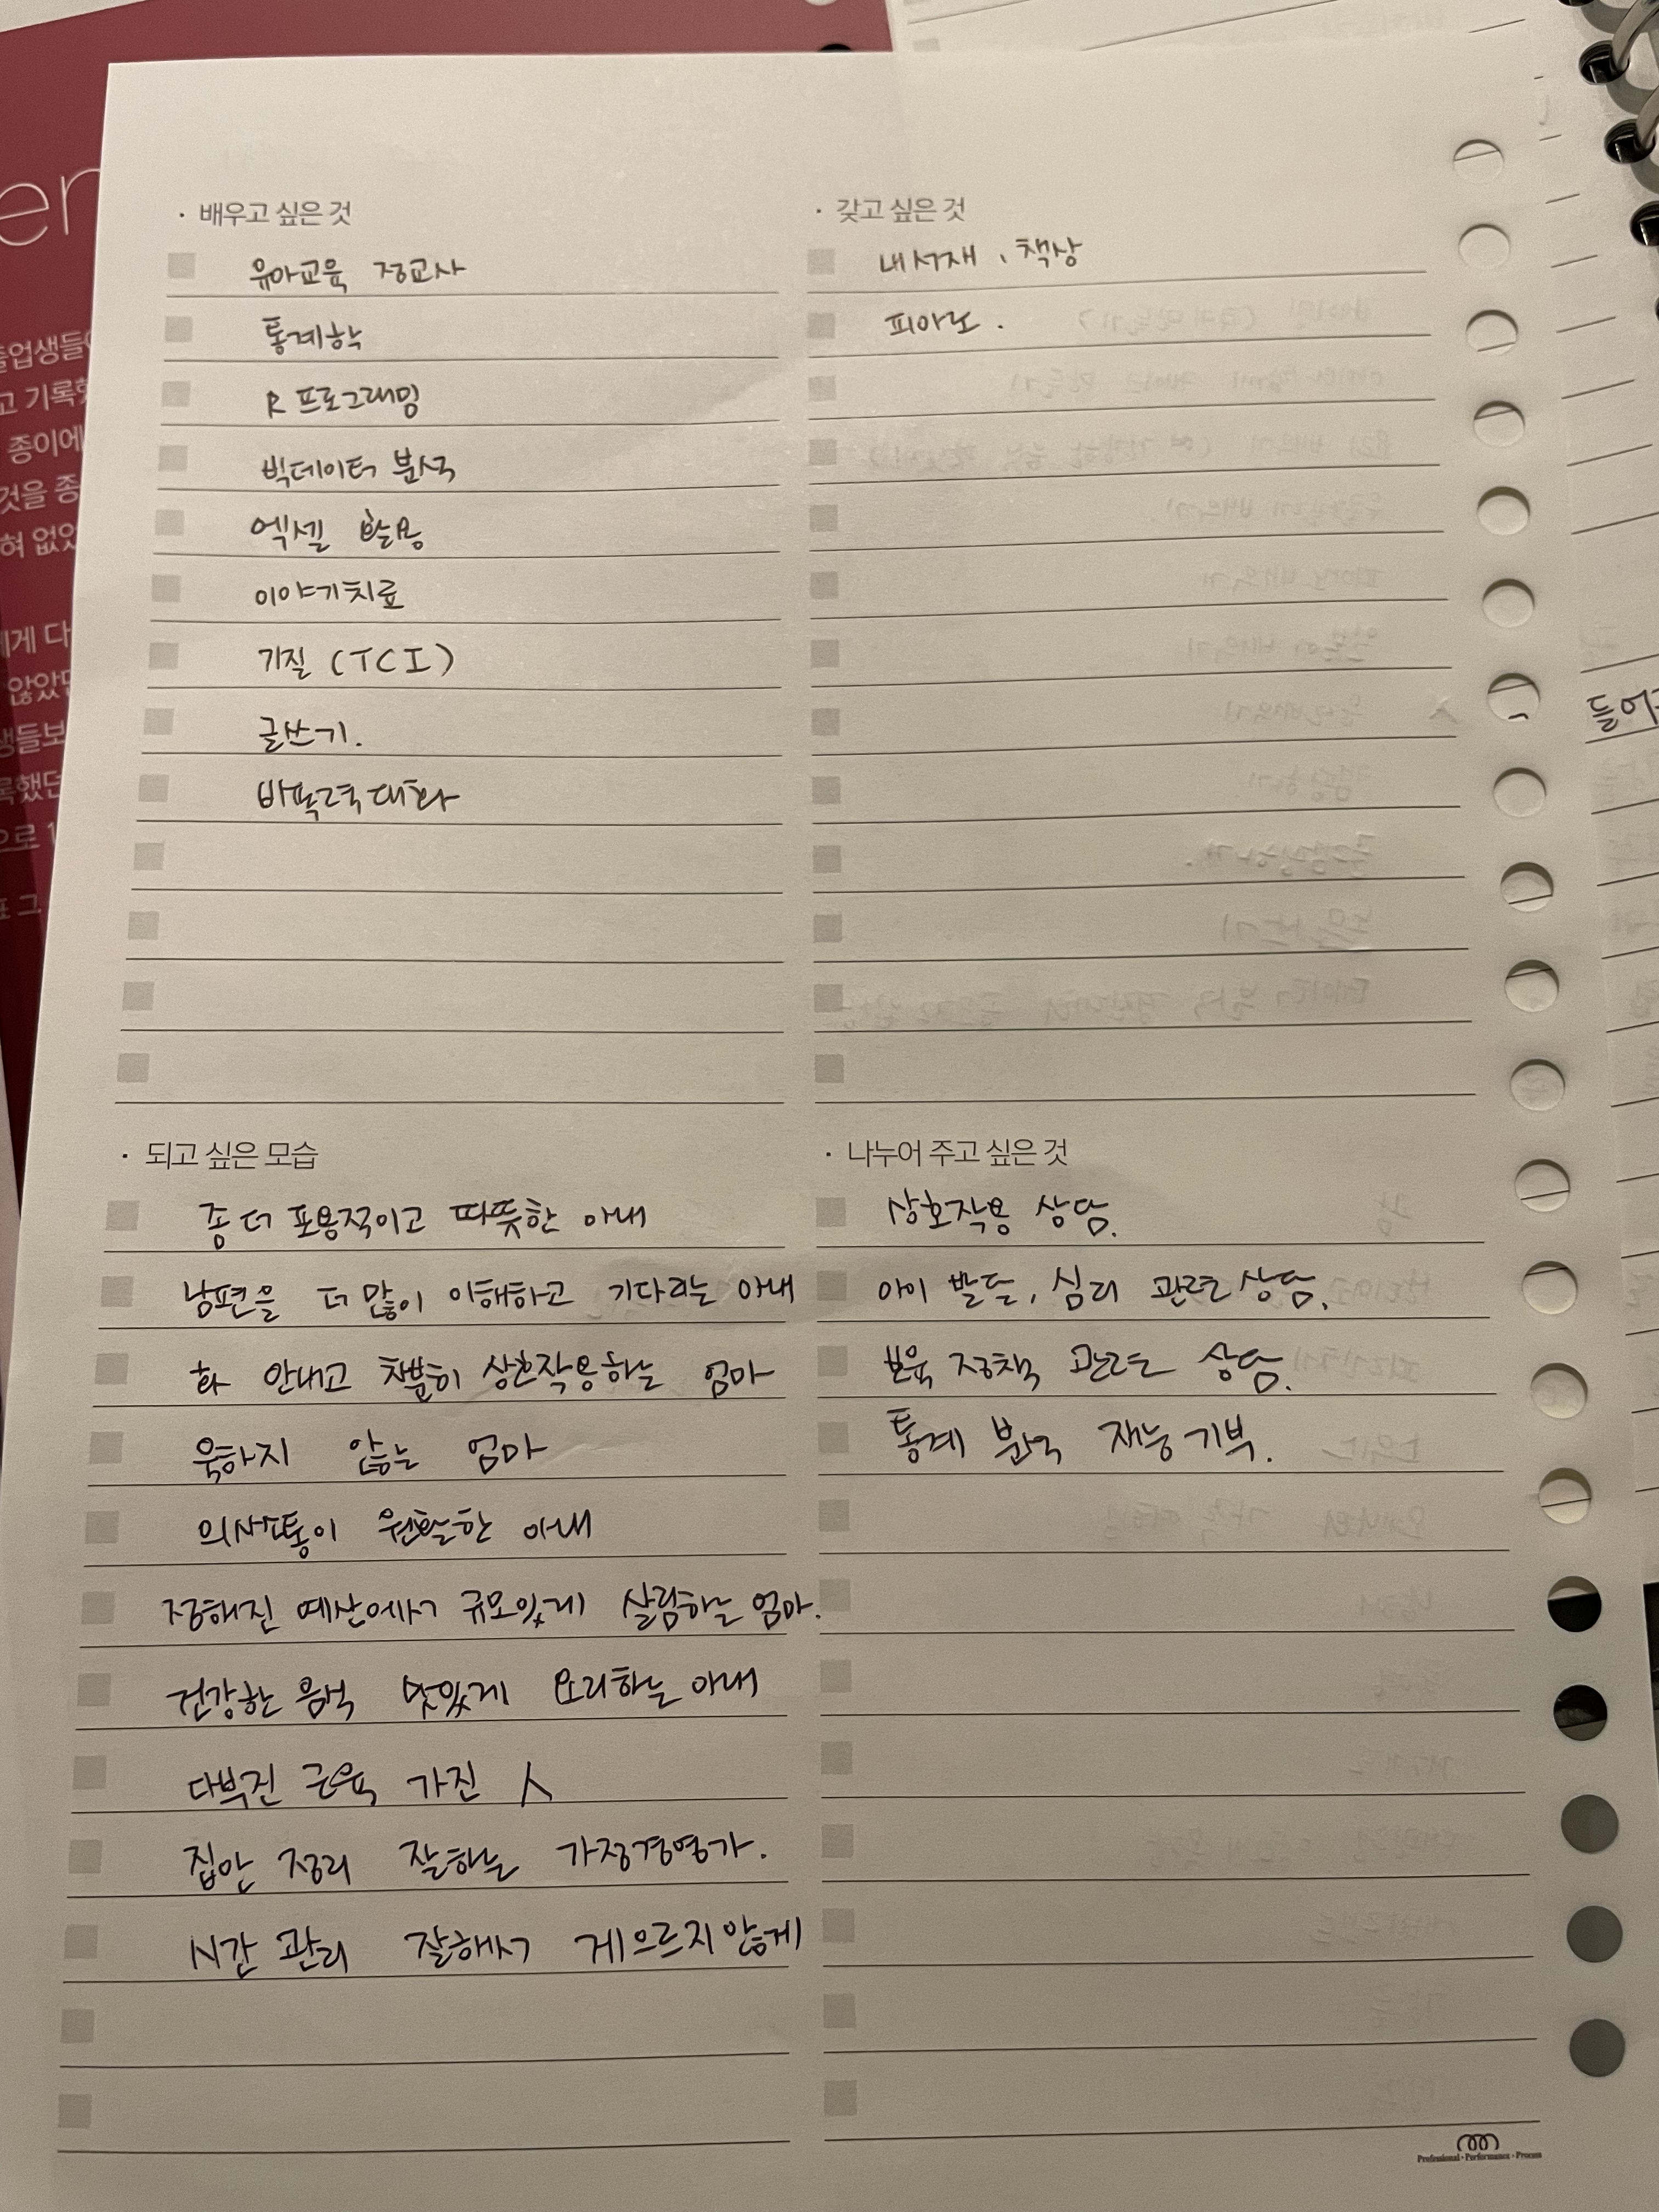 · 배우고 싶은 것
유아교육 정교사
통계학
R 프로그래밍
빅데이터 분석
엑셀 활용
이야기치료
기질 (TCI)
글쓰기.
비폭력대화
· 갖고 싶은 것
내 서재, 책상
피아노.
· 되고 싶은 모습
좀 더 포용적이고 따뜻한 아내
남편을 더 많이 이해하고 기다리는 아내
화 안내고 차분히 상호작용하는 엄마
욱하지 않는 엄마
의사소통이 원활한 아내
정해진 예산에서 규모있게 살림하는 엄마.
건강한 음식 맛있게 요리하는 아내
다부진 근육 가진 人
집안 정리 잘하는 가정경영가.
시간 관리 잘해서 게으르지 않게
· 나누어 주고 싶은 것
상호작용 상담.
아이 발달, 심리 관련 상담.
보육 정책 관련 상담.
통계 분석 재능기부.
Professional · Performance · Process
en
졸업생들이
고 기록
종이에
것을 종
혀 없었
에게 다
않았던
생들보
록했던
으로 1
표 그
들어